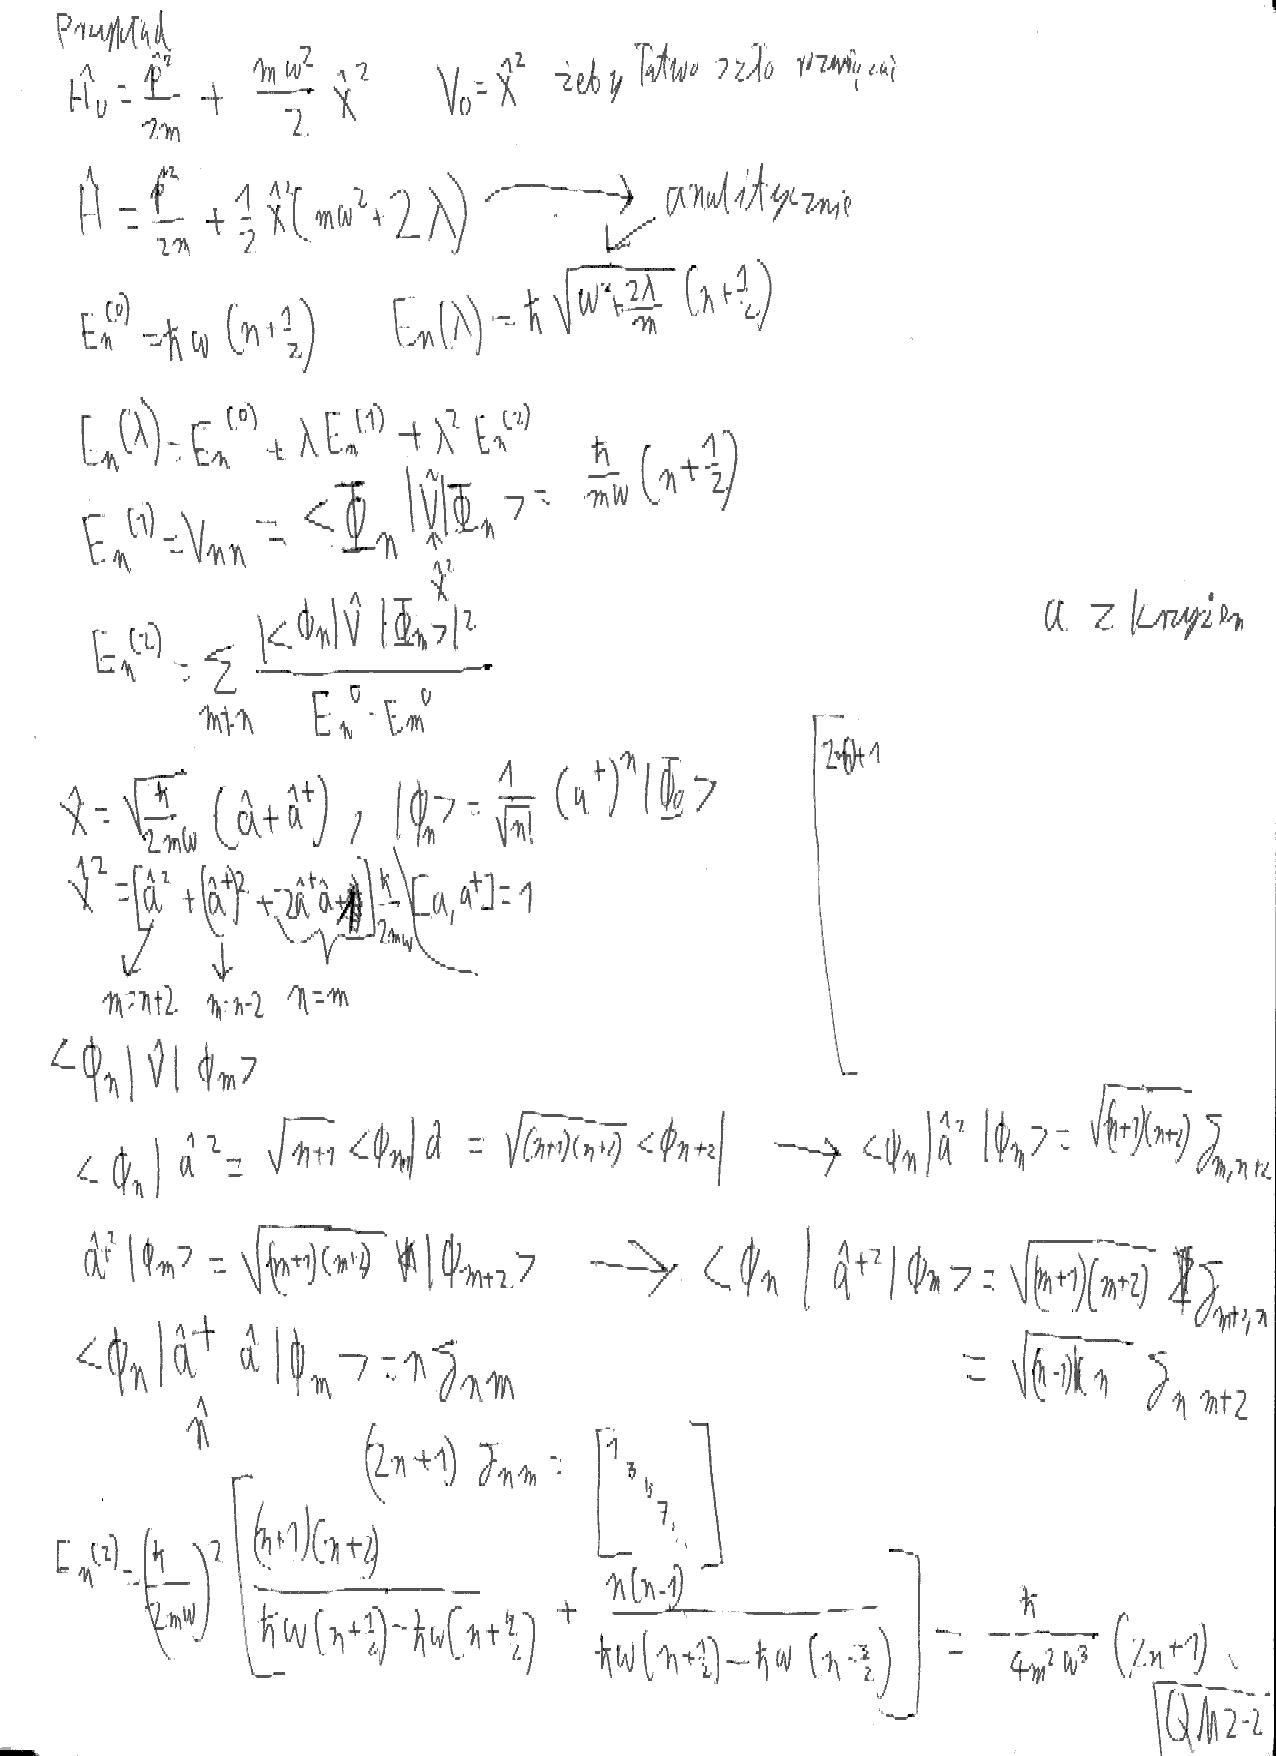 Przykład
Ĥ₀ = p̂²/2m + mω²/2 x̂²    V₀ = x̂² żeby łatwo szło rozwiązać
Ĥ = p̂²/2m + 1/2 x̂² (mω² + 2λ) → analitycznie
Eₙ⁽⁰⁾ = ħω (n + 1/2)    Eₙ(λ) = ħ √(ω² + 2λ/m) (n + 1/2)
Eₙ(λ) = Eₙ⁽⁰⁾ + λ Eₙ⁽¹⁾ + λ² Eₙ⁽²⁾
Eₙ⁽¹⁾ = Vₙₙ = <Φₙ|V̂|Φₙ> = ħ/mω (n + 1/2)
x̂²
Eₙ⁽²⁾ = Σ_{m≠n} |<ϕₙ|V̂|Φₘ>|² / (Eₙ⁰ - Eₘ⁰)
a z
2n+1
x̂ = √(ħ/2mω) (â + â⁺), |ϕₙ> = 1/√n! (a⁺)ⁿ |Φ₀>
x̂² = [â² + (â⁺)² + 2â⁺â + 1] ħ/2mω    [a, a⁺] = 1
m=n+2    m=n-2    n=m
<ϕₙ|V̂|ϕₘ>
<ϕₙ|â² = √(n+1) <ϕₙ₊₁|â = √((n+1)(n+2)) <ϕₙ₊₂| → <ϕₙ|â²|ϕₘ> = √((n+1)(n+2)) δ_{m,n+2}
â⁺²|ϕₘ> = √((m+1)(m+2)) |ϕₘ₊₂> → <ϕₙ|â⁺²|ϕₘ> = √((m+1)(m+2)) δ_{m+2,n}
= √((n-1) n) δ_{n m+2}
<ϕₙ|â⁺ â|ϕₘ> = n δₙₘ
n̂
(2n+1) δₙₘ = [1 3 5 7 ...]
Eₙ⁽²⁾ = (ħ/2mω)² [ (n+1)(n+2) / (ħω(n+1/2) - ħω(n+5/2)) + n(n-1) / (ħω(n+1/2) - ħω(n-3/2)) ] = ħ/4m²ω³ (2n+1)
QM2-2